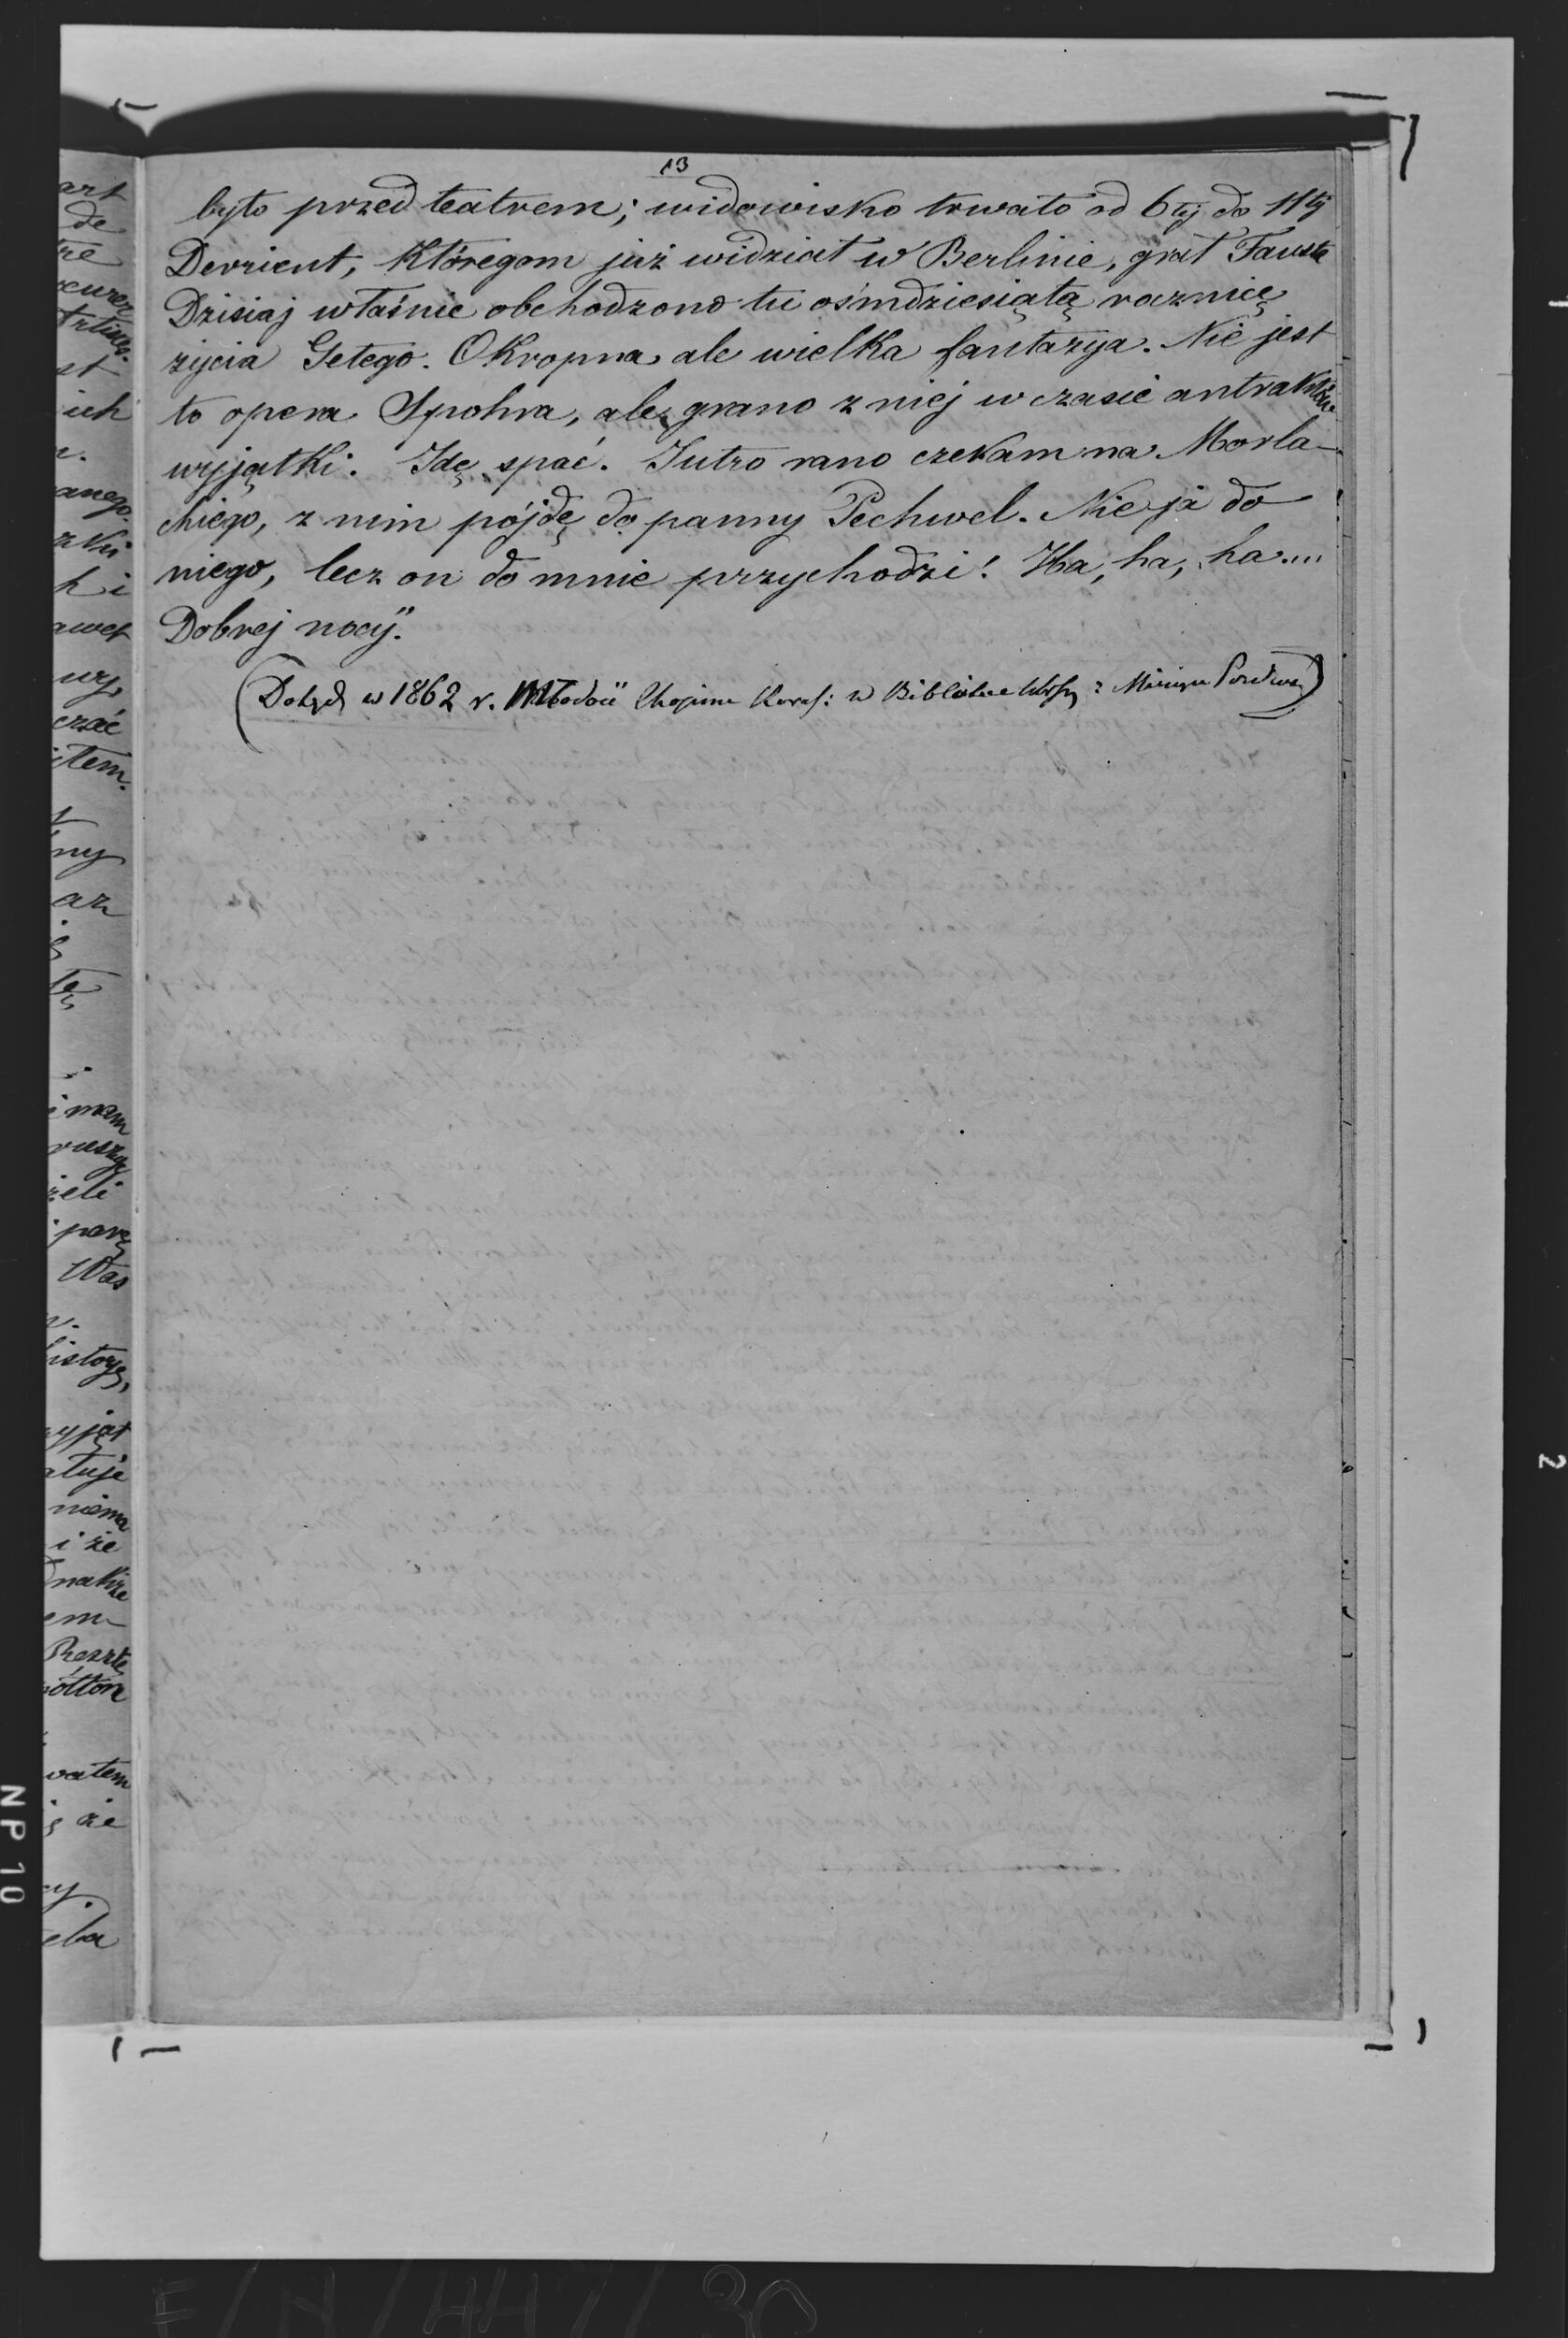 13
było przed teatrem; widowisko trwało od 6tej do 11tej
Devrient, któregom już widział w Berlinie, grał Fausta
Dzisiaj właśnie obchodzono tu ośmdziesiątą rocznicę
życia Getego. Okropna ale wielka fantazya. Nie jest
to opera Spohra, ale grano z niej w czasie antraktów
wyjątki. Idę spać. Jutro rano czekam na Morla-
chiego, z nim pójdę do panny Pechwel. Nie ja do
niego, lecz on do mnie przychodzi! Ha, ha, ha....
Dobrej nocy".
(Dotąd w 1862 r. Młodość Chopina Karas: w Bibliotece
art
de
st
ich
anego
hi
awet
wy,
czać
item.
ny
az
tę
i mam
ruszy
żeli
parę
Was
historyę,
yjął
atuje
niema
i że
dnakże
em
Resztę
półtora
wałem
że
cy.
eba
NP 10
2